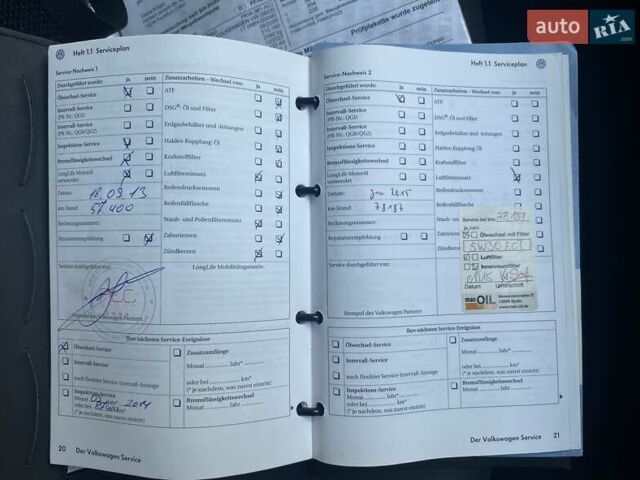 auto RIA.com
Prüfplakette wurde zugeteilt
Heft 1.1 Serviceplan
Service-Nachweis 1
Durchgeführt wurde: ja nein
Ölwechsel-Service
Intervall-Service
(PR-Nr.: QGI)
Intervall-Service
(PR-Nr.: QG0/QG2)
Inspektions-Service
Bremsflüssigkeitswechsel
LongLife Motoröl
verwendet
Datum: 18.09.13
km-Stand: 57.400
Rechnungsnummer:
Reparaturempfehlung
Zusatzarbeiten - Wechsel von: ja nein
ATF
DSG®: Öl und Filter
Erdgasbehälter und -leitungen
Haldex-Kupplung: Öl
Kraftstofffilter
Luftfiltereinsatz
Reifendrucksensoren
Reifenfüllflasche
Staub- und Pollenfiltereinsatz
Zahnriemen
Zündkerzen
Service durchgeführt von:
LongLife Mobilitätsgarantie:
Stempel des Volkswagen Partners
Ihre nächsten Service-Ereignisse
Ölwechsel-Service
Intervall-Service
nach flexibler Service-Intervall-Anzeige
Inspektions-Service
Monat Jahr* 2014
oder bei km*
(* je nachdem, was zuerst eintritt)
Zusatzumfänge
Monat Jahr*
oder bei km*
(* je nachdem, was zuerst eintritt)
Bremsflüssigkeitswechsel
Monat Jahr
20
Der Volkswagen Service
Heft 1.1 Serviceplan
Service-Nachweis 2
Durchgeführt wurde: ja nein
Ölwechsel-Service
Intervall-Service
(PR-Nr.: QGI)
Intervall-Service
(PR-Nr.: QG0/QG2)
Inspektions-Service
Bremsflüssigkeitswechsel
LongLife Motoröl
verwendet
Datum: Jan 2015
km-Stand: 78187
Rechnungsnummer:
Reparaturempfehlung
Zusatzarbeiten - Wechsel von: ja nein
ATF
DSG®: Öl und Filter
Erdgasbehälter und -leitungen
Haldex-Kupplung: Öl
Kraftstofffilter
Luftfiltereinsatz
Reifendrucksensoren
Reifenfüllflasche
Staub- und
Zahnriemen
Zündkerzen
Service bei km: 78187
ja nein
Ölwechsel mit Filter
5W30 EC1
Luftfilter
Innenraumfilter
01/15
Datum Unterschrift
mac OIL
www.mac-oil.de
Service durchgeführt von:
Stempel des Volkswagen Partners
Ihre nächsten Service-Ereignisse
Ölwechsel-Service
Intervall-Service
nach flexibler Service-Intervall-Anzeige
Inspektions-Service
Monat Jahr*
oder bei km*
(* je nachdem, was zuerst eintritt)
Zusatzumfänge
Monat Jahr*
oder bei km*
(* je nachdem, was zuerst eintritt)
Bremsflüssigkeitswechsel
Monat Jahr
Der Volkswagen Service
21